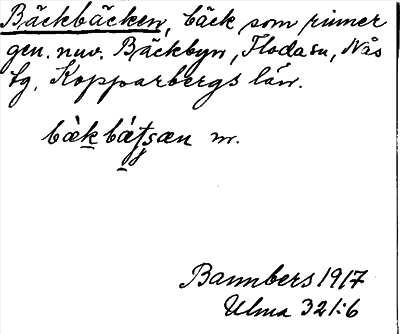 Bäckbäcken, bäck som rinner
gen. nuv. Bäckbyn, Floda sn, Nås
tg. Kopparbergs län.
bäkbätsæn m.
Bannbers 1917
Ulma 321:6